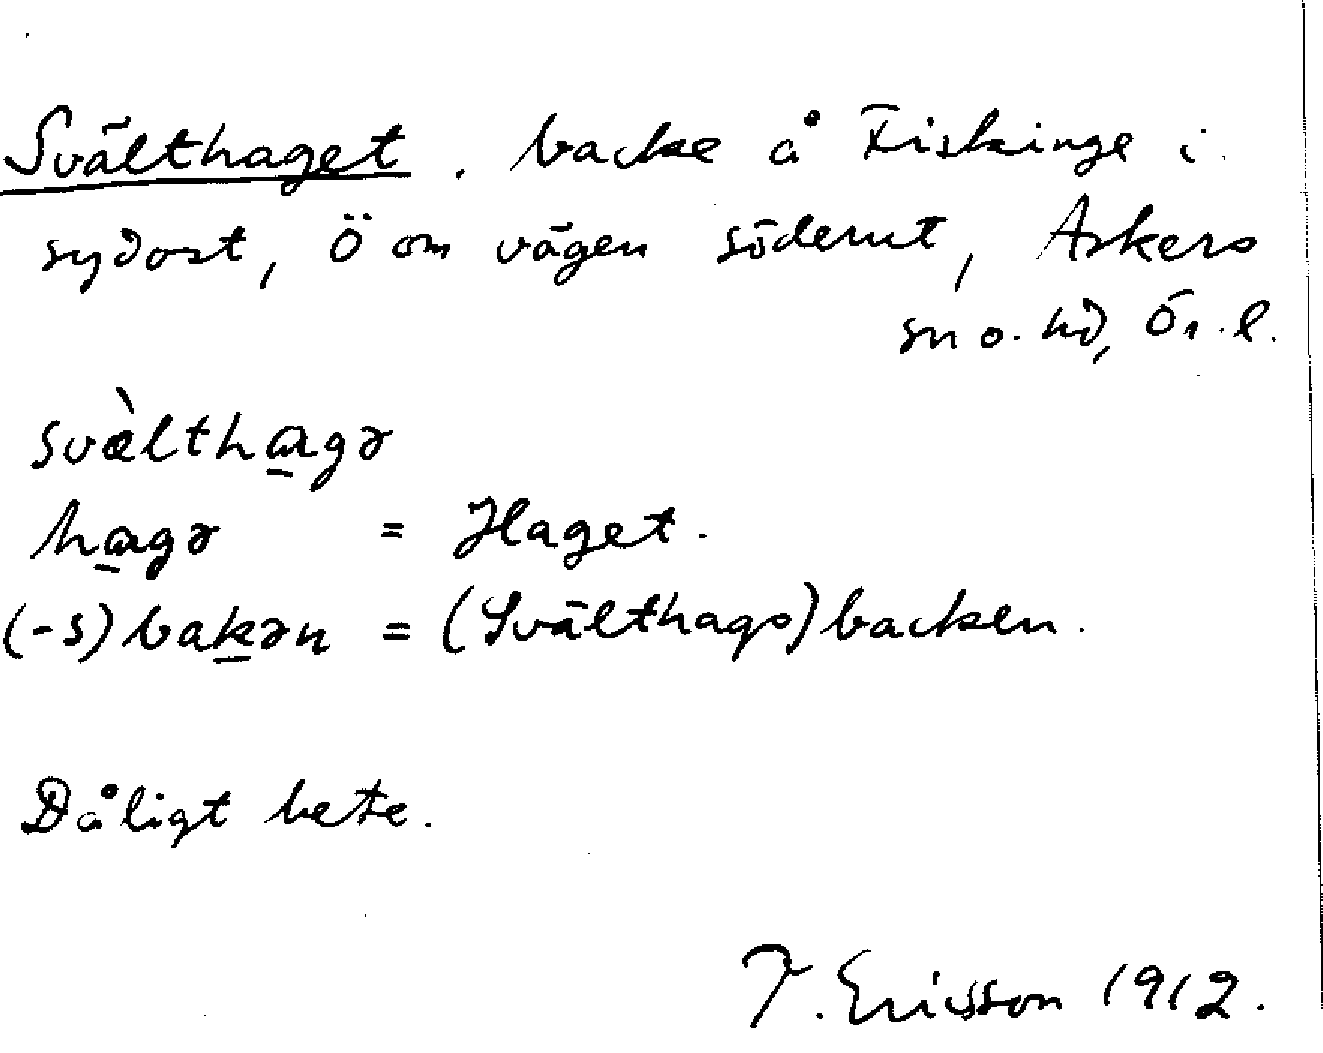 Svälthaget, backe å Fiskinge i
sydost, Ö om vägen söderut, Askers
sn o. hd, Ör. l.
svæ̀ltha̲gə
ha̲gə = Haget.
(-s)bak̲ən = (Svälthags)backen.
Dåligt bete.
T. Ericsson 1912.